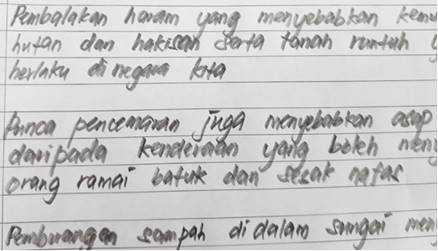 Pembalakan haram yang menyebabkan kemu
hutan dan hakisan serta tanah runtuh
berlaku di negara kita
Punca pencemaran juga menyebabkan asap
daripada kenderaan yang boleh meny
orang ramai batuk dan sesak nafas
Pembuangan sampah di dalam sungai men